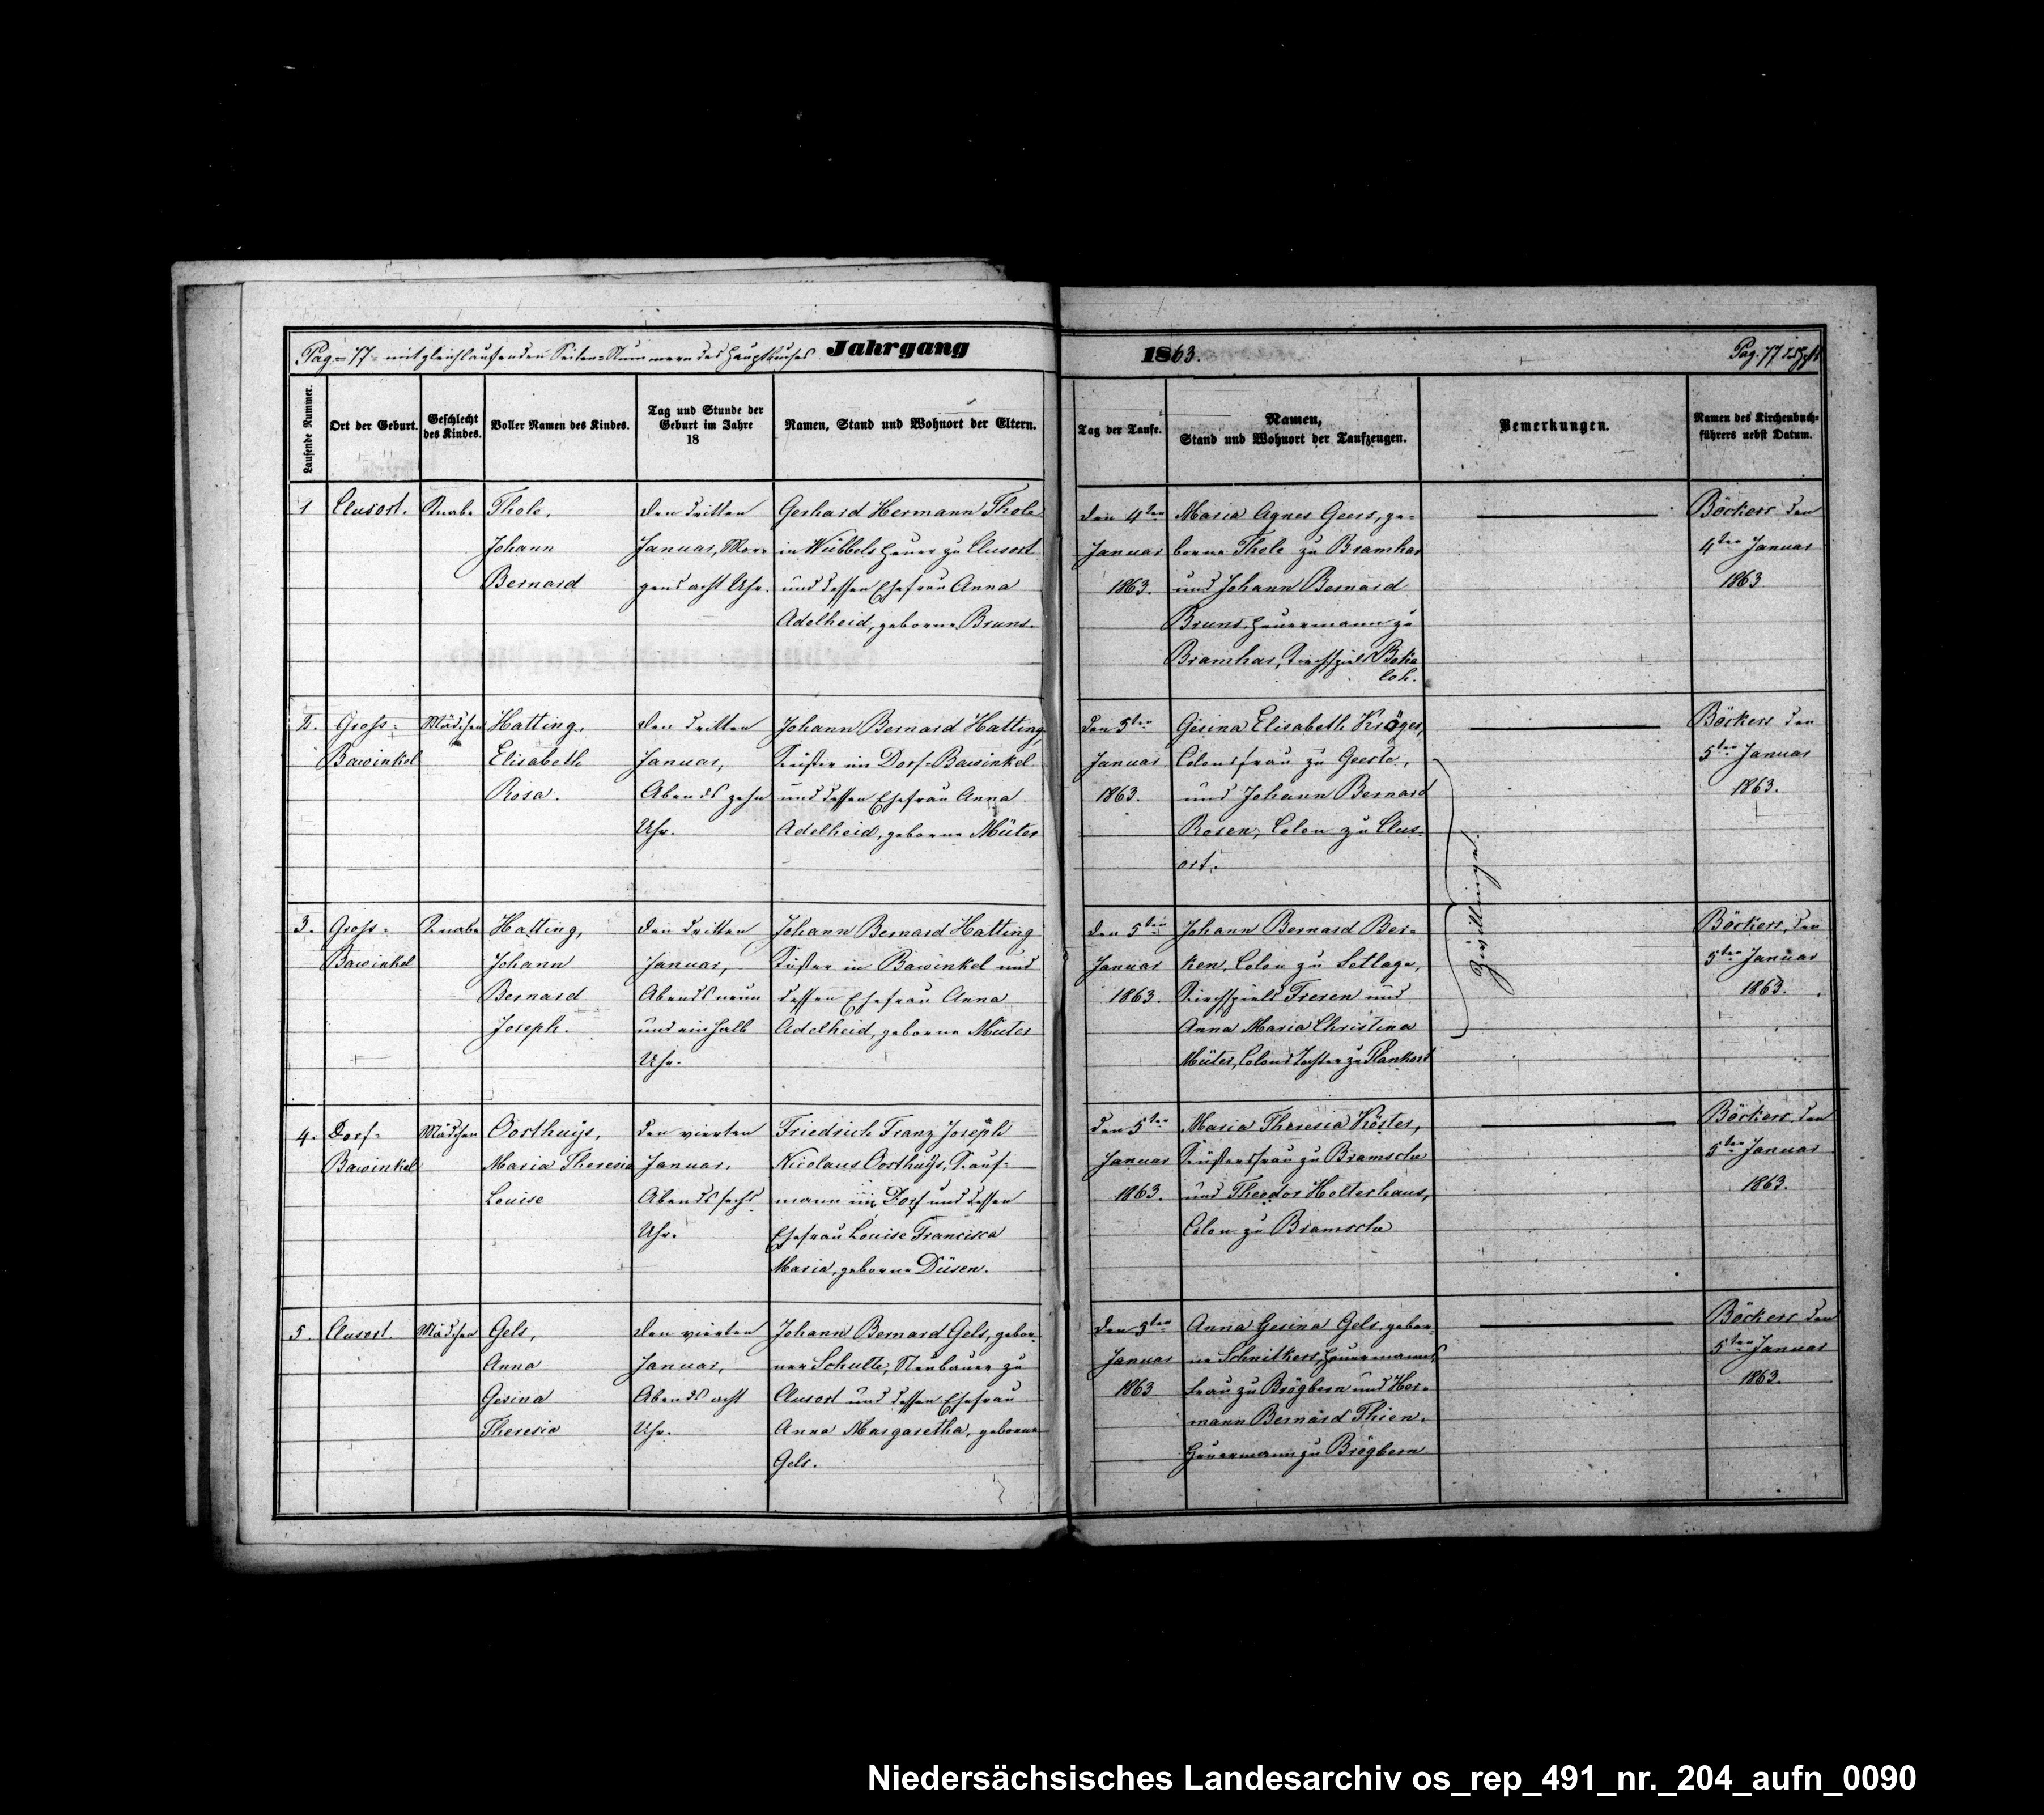 Pag. 77 mit gleichlaufenden Seiten-Nummern des Hauptbuches Jahrgang
1863.
Pag. 77
Laufende Nummer.
Ort der Geburt.
Geschlecht
des Kindes.
Voller Namen des Kindes.
Tag und Stunde der
Geburt im Jahre
18
Namen, Stand und Wohnort der Eltern.
Tag der Taufe.
Namen,
Stand und Wohnort der Taufzeugen.
Bemerkungen.
Namen des Kirchenbuch-
führers nebst Datum.
1
Clusort.
Knabe
Thole,
Johann
Bernard
den dritten
Januar, Mor-
gens acht Uhr.
Gerhard Hermann Thole
in Wübbels Heuer zu Clusort
und dessen Ehefrau Anna
Adelheid, geborne Bruns.
den 4ten
Januar
1863.
Maria Agnes Geers, ge-
borne Thole zu Bramhar
und Johann Bernard
Bruns Heuermann zu
Bramhar, Kirchspiels Boke
loh.
Böckers den
4ten Januar
1863
2.
Gross-
Bawinkel
Mädchen
Hatting,
Elisabeth
Rosa.
den dritten
Januar,
Abends zehn
Uhr.
Johann Bernard Hatting,
Küster im Dorf-Bawinkel
und dessen Ehefrau Anna
Adelheid, geborne Müter
den 5ten
Januar
1863.
Gesina Elisabeth Kröger,
Colonsfrau zu Geeste,
und Johann Bernard
Rosen, Colon zu Clus-
ort.
Zwillinge.
Böckers den
5ten Januar
1863.
3.
Gross-
Bawinkel
Knabe
Hatting,
Johann
Bernard
Joseph.
den dritten
Januar,
Abends neun
und ein halb
Uhr.
Johann Bernard Hatting
Küster in Bawinkel und
dessen Ehefrau Anna
Adelheid, geborne Müter
den 5ten
Januar
1863.
Johann Bernard Ber-
ken, Colon zu Setlage,
Kirchspiels Freren und
Anna Maria Christina
Müter, Colons Tochter zu Plankort
Böckers, den
5ten Januar
1863.
4.
Dorf-
Bawinkel
Mädchen
Oosthuys,
Maria Theresia
Louise
den vierten
Januar,
Abends sechs
Uhr.
Friedrich Franz Joseph
Nicolaus Oosthuys, Kauf-
mann im Dorf und dessen
Ehefrau Louise Francisca
Maria, geborne Düsen.
den 5ten
Januar
1863.
Maria Theresia Köster,
Küstersfrau zu Bramsche
und Theodor Holterhaus,
Colon zu Bramsche
Böckers, den
5ten Januar
1863.
5.
Clusort
Mädchen
Gels,
Anna
Gesina
Theresia
den vierten
Januar,
Abends acht
Uhr.
Johann Bernard Gels, gebor-
ner Schulte, Neubauer zu
Clusort und dessen Ehefrau
Anna Margaretha, geborne
Gels.
den 5ten
Januar
1863
Anna Gesina Gels, gebor-
ne Schnitkers, Heuermanns
frau zu Brögbern und Her-
mann Bernard Thien,
Heuermann zu Brögbern
Böckers den
5ten Januar
1863.
Niedersächsisches Landesarchiv os_rep_491_nr._204_aufn_0090